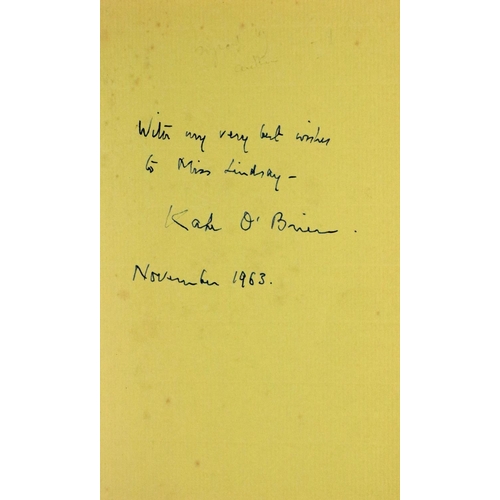 With my very best wishes
to Miss Lindsay –
Kate O'Brien.
November 1963.